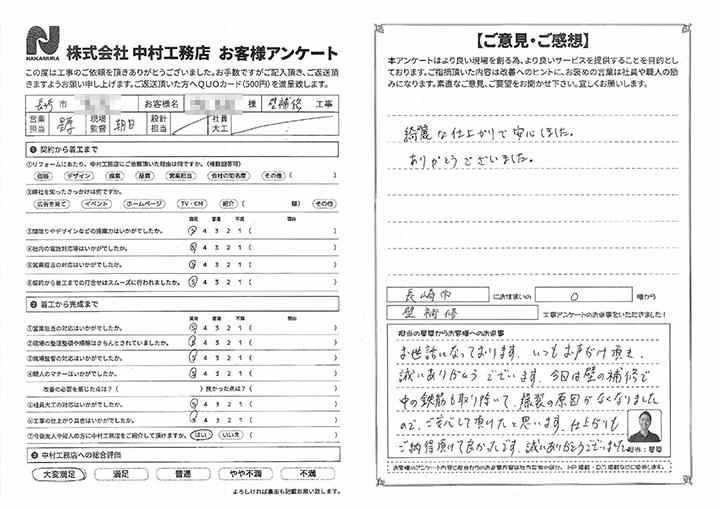 NAKAMURA
株式会社 中村工務店 お客様アンケート
この度は工事のご依頼を頂きありがとうございました。お手数ですがご記入頂き、ご返送頂
きますようお願い申し上げます。ご返送頂いた方へQUOカード(500円)を進呈致します。
長崎 市 お客様名 様 壁補修 工事
営業担当 現場監督 朝日 設計担当 社員大工
❶ 契約から着工まで
①リフォームにあたり、中村工務店にご依頼頂いた理由は何ですか。(複数回答可)
価格 デザイン 提案 品質 営業担当 会社の知名度 その他 ( )
②弊社を知ったきっかけは何ですか。
広告を見て イベント ホームページ TV・CM 紹介 ( 様) その他
満足 普通 不満 理由
③間取りやデザインなどの提案力はいかがでしたか。 5 4 3 2 1 ( )
④社内の電話対応等はいかがでしたか。 5 4 3 2 1 ( )
⑤営業担当の対応はいかがでしたか。 5 4 3 2 1 ( )
⑥契約から着工までの打合せはスムーズに行われましたか。 5 4 3 2 1 ( )
❷ 着工から完成まで
満足 普通 不満 理由
①営業担当の対応はいかがでしたか。 5 4 3 2 1 ( )
②現場の整理整頓や掃除はきちんとされていましたか。 5 4 3 2 1 ( )
③現場監督の対応はいかがでしたか。 5 4 3 2 1 ( )
④職人のマナーはいかがでしたか。 5 4 3 2 1 ( )
改善の必要を感じた点は?( )良かった点は?( )
⑤社員大工の対応はいかがでしたか。 5 4 3 2 1 ( )
⑥工事の仕上がり具合はいかがでしたか。 5 4 3 2 1 ( )
⑦今後友人や知人の方に中村工務店をご紹介して頂けますか。 はい いいえ ( )
❸ 中村工務店への総合評価
大変満足 満足 普通 やや不満 不満
よろしければ裏面も記載お願い致します。
【ご意見・ご感想】
本アンケートはより良い現場を創る為、より良いサービスを提供することを目的とし
ております。ご指摘頂いた内容は改善へのヒントに、お褒めの言葉は社員や職人の励
みになります。素直なご意見、ご要望をお聞かせ下さい。宜しくお願いします。
綺麗な仕上がりで安心しました。
ありがとうございました。
長崎市 にお住まいの O 様から
壁補修 工事アンケートのお返事をいただきました!
担当の星原からお客様へのお返事
お世話になっております。いつもお声がけ頂き、
誠にありがとうございます。今回は壁の補修で
中の鉄筋も取り除いて、爆裂の原因がなくなりました
ので、ご安心して頂けたと思います。仕上がりも
ご納得頂けて良かったです。誠にありがとうございました。
担当:星原
お客様のアンケート内容と担当からのお返事内容は社内共有のほか、HP掲載・DM掲載などに使用します。